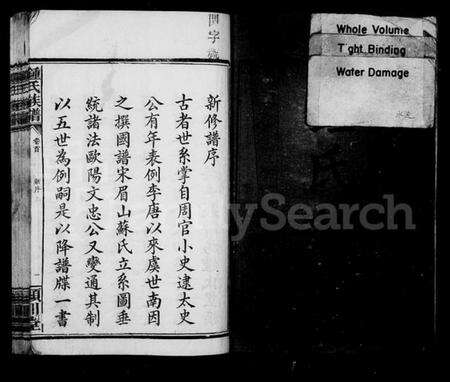 新修譜序
古者世系掌自周官小史逮太史
公有年表例李唐以來虞世南因
之撰國譜宋眉山蘇氏立系圖垂
統諸法歐陽文忠公又變通其制
以五世為例嗣是以降譜牒一書
鍾氏族譜
卷首
新序
一
潁川堂
Whole Volume
Tight Binding
Water Damage
FamilySearch